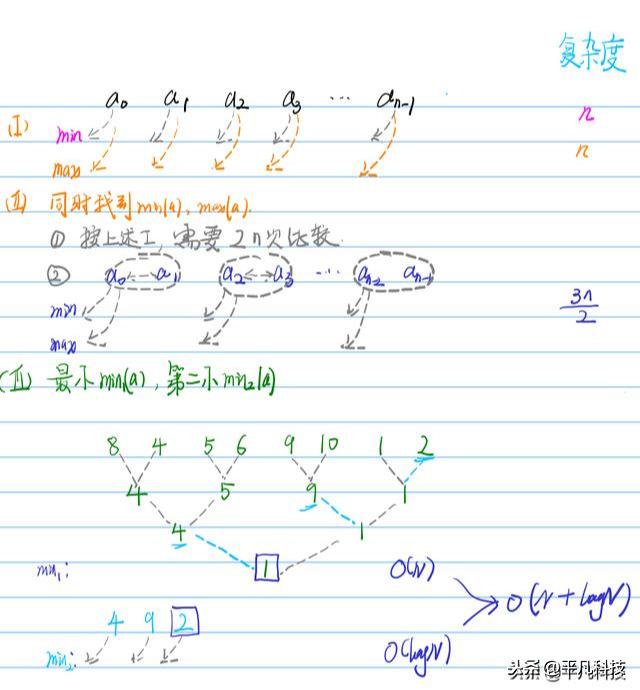 复杂度
a0 a1 a2 a3 ... an-1
(I) min n
max n
(II) 同时找到min(a), max(a).
① 按上述I, 需要2n次比较.
② a0 a1 a2 a3 ... an-2 an-1
min 3n/2
max
(III) 最小min1(a), 第二小min2(a)
8 4 5 6 9 10 1 2
4 5 9 1
4 1
min1: 1 O(N)
O(N+logN)
4 9 2
min2: O(logN)
头条@平凡科技